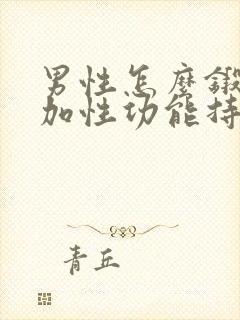 男性怎麼鍛
加性功能持
青丘